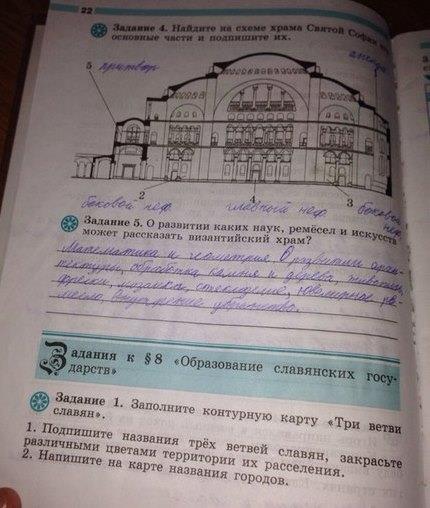 22
Задание 4. Найдите на схеме храма Святой Софии
основные части и подпишите их.
апсида
5 притвор
2 4 3
боковой неф главный неф боковой
неф
Задание 5. О развитии каких наук, ремёсел и искусств
может рассказать византийский храм?
Математика и геометрия. О развитии архи-
тектуры, обработка камня и дерева, живопись,
фрески, мозаика, стеклоделие, ювелирное ре-
месло, внутреннее убранство.
Задания к § 8 «Образование славянских госу-
дарств»
Задание 1. Заполните контурную карту «Три ветви
славян».
1. Подпишите названия трёх ветвей славян, закрасьте
различными цветами территории их расселения.
2. Напишите на карте названия городов.